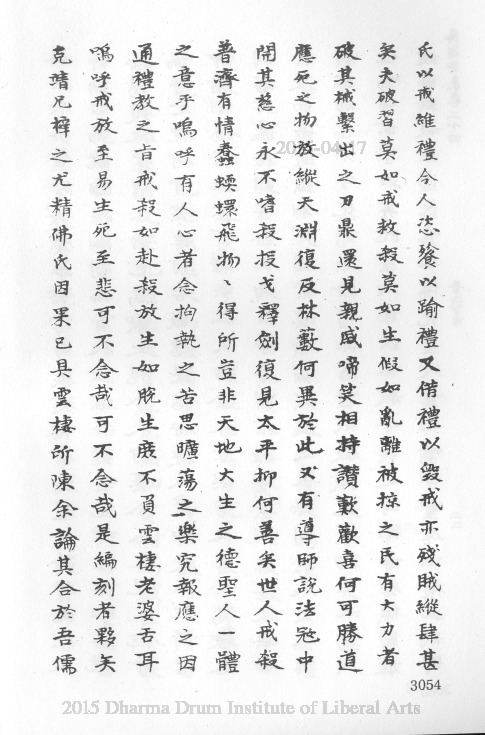 氏以戒維禮今人恣饕以踰禮又偕禮以毀戒亦殘賊縱肆甚
矣夫破習莫如戒救殺莫如生假如亂離被掠之民有大力者
破其械繫出之刀鼎還見親戚啼笑相持讚歎歡喜何可勝道
應死之物放縱天淵復反林藪何異於此又有導師說法冤中
開其慈心永不嗜殺投戈釋劍復見太平抑何善矣世人戒殺
普濟有情蠢蝡螺飛物、得所豈非天地大生之德聖人一體
之意乎嗚呼有人心者念拘執之苦思曠蕩之樂究報應之因
通禮教之旨戒殺如赴殺放生如脫生庶不負雲棲老婆舌耳
嗚呼戒放至易生死至悲可不念哉可不念哉是編刻者夥矣
克靖兄梓之尤精佛氏因果已具雲棲所陳余論其合於吾儒
3054
2015-04-17
2015 Dharma Drum Institute of Liberal Arts